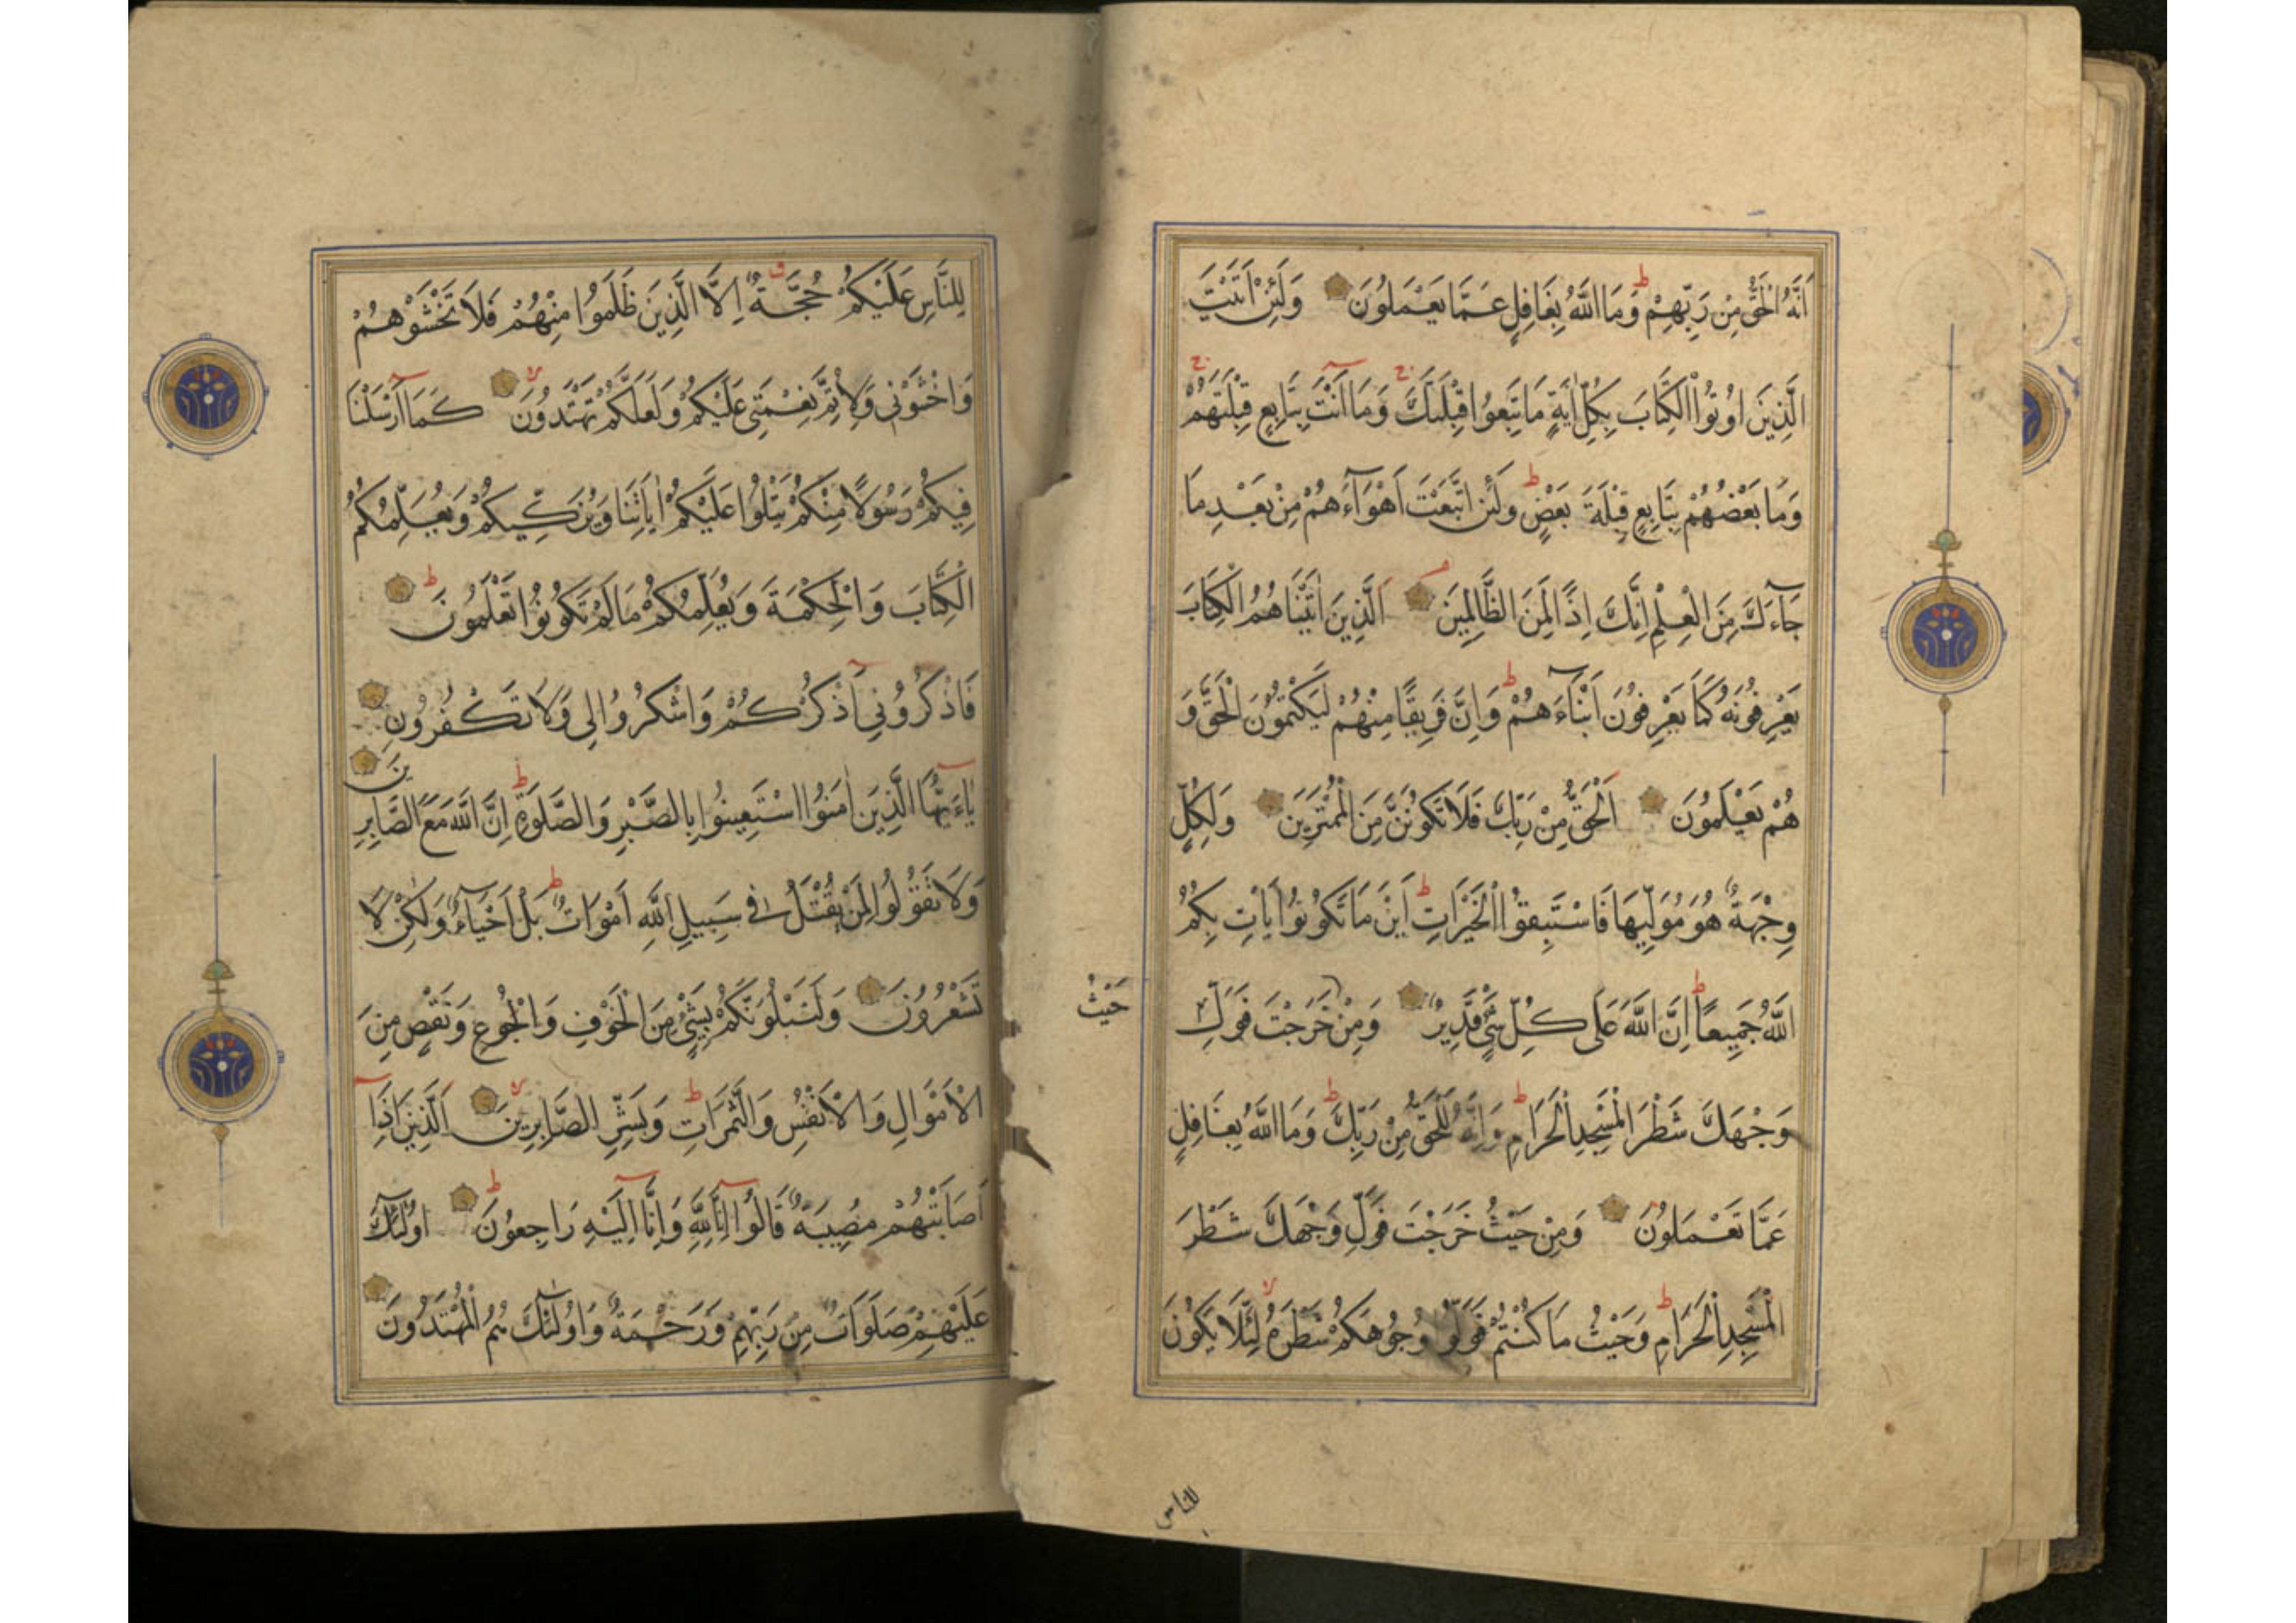 اَنَّهُ الْحَقُّ مِنْ رَبِّهِمْ ط وَمَا اللَّهُ بِغَافِلٍ عَمَّا يَعْمَلُونَ وَلَئِنْ اَتَيْتَ
الَّذِينَ اُوتُوا الْكِتَابَ بِكُلِّ اٰيَةٍ مَا تَبِعُوا قِبْلَتَكَ ج وَمَا اَنْتَ بِتَابِعٍ قِبْلَتَهُمْ ج
وَمَا بَعْضُهُمْ بِتَابِعٍ قِبْلَةَ بَعْضٍ ط وَلَئِنِ اتَّبَعْتَ اَهْوَآءَهُمْ مِنْ بَعْدِ مَا
جَآءَكَ مِنَ الْعِلْمِ اِنَّكَ اِذًا لَمِنَ الظَّالِمِينَ اَلَّذِينَ اٰتَيْنَاهُمُ الْكِتَابَ
يَعْرِفُونَهُ كَمَا يَعْرِفُونَ اَبْنَآءَهُمْ ط وَاِنَّ فَرِيقًا مِنْهُمْ لَيَكْتُمُونَ الْحَقَّ وَ
هُمْ يَعْلَمُونَ اَلْحَقُّ مِنْ رَبِّكَ فَلَا تَكُونَنَّ مِنَ الْمُمْتَرِينَ وَلِكُلٍّ
وِجْهَةٌ هُوَ مُوَلِّيهَا فَاسْتَبِقُوا الْخَيْرَاتِ ط اَيْنَ مَا تَكُونُوا يَأْتِ بِكُمُ
اللَّهُ جَمِيعًا ط اِنَّ اللَّهَ عَلَى كُلِّ شَيْءٍ قَدِيرٌ وَمِنْ خَرَجْتَ فَوَلِّ
حَيْثُ
وَجْهَكَ شَطْرَ الْمَسْجِدِ الْحَرَامِ ط وَاِنَّهُ لَلْحَقُّ مِنْ رَبِّكَ ط وَمَا اللَّهُ بِغَافِلٍ
عَمَّا تَعْمَلُونَ وَمِنْ حَيْثُ خَرَجْتَ فَوَلِّ وَجْهَكَ شَطْرَ
الْمَسْجِدِ الْحَرَامِ ط وَحَيْثُ مَا كُنْتُمْ فَوَلُّوا وُجُوهَكُمْ شَطْرَهُ لا لِئَلَّا يَكُونَ
للناس
لِلنَّاسِ عَلَيْكُمْ حُجَّةٌ ق اِلَّا الَّذِينَ ظَلَمُوا مِنْهُمْ فَلَا تَخْشَوْهُمْ
وَاخْشَوْنِي وَلِاُتِمَّ نِعْمَتِي عَلَيْكُمْ وَلَعَلَّكُمْ تَهْتَدُونَ لا كَمَا اَرْسَلْنَا
فِيكُمْ رَسُولًا مِنْكُمْ يَتْلُوا عَلَيْكُمْ اٰيَاتِنَا وَيُزَكِّيكُمْ وَيُعَلِّمُكُمُ
الْكِتَابَ وَالْحِكْمَةَ وَيُعَلِّمُكُمْ مَا لَمْ تَكُونُوا تَعْلَمُونَ ط
فَاذْكُرُونِي اَذْكُرْكُمْ وَاشْكُرُوا لِي وَلَا تَكْفُرُونِ
يٰاءَيُّهَا الَّذِينَ اٰمَنُوا اسْتَعِينُوا بِالصَّبْرِ وَالصَّلٰوةِ ط اِنَّ اللَّهَ مَعَ الصَّابِرِينَ
وَلَا تَقُولُوا لِمَنْ يُقْتَلُ فِي سَبِيلِ اللَّهِ اَمْوَاتٌ ط بَلْ اَحْيَآءٌ وَلٰكِنْ لَا
تَشْعُرُونَ وَلَنَبْلُوَنَّكُمْ بِشَيْءٍ مِنَ الْخَوْفِ وَالْجُوعِ وَنَقْصٍ مِنَ
الْاَمْوَالِ وَالْاَنْفُسِ وَالثَّمَرَاتِ ط وَبَشِّرِ الصَّابِرِينَ لا اَلَّذِينَ اِذَا
اَصَابَتْهُمْ مُصِيبَةٌ قَالُوا اِنَّا لِلَّهِ وَاِنَّا اِلَيْهِ رَاجِعُونَ ط اُولٰئِكَ
عَلَيْهِمْ صَلَوَاتٌ مِنْ رَبِّهِمْ وَرَحْمَةٌ وَاُولٰئِكَ هُمُ الْمُهْتَدُونَ